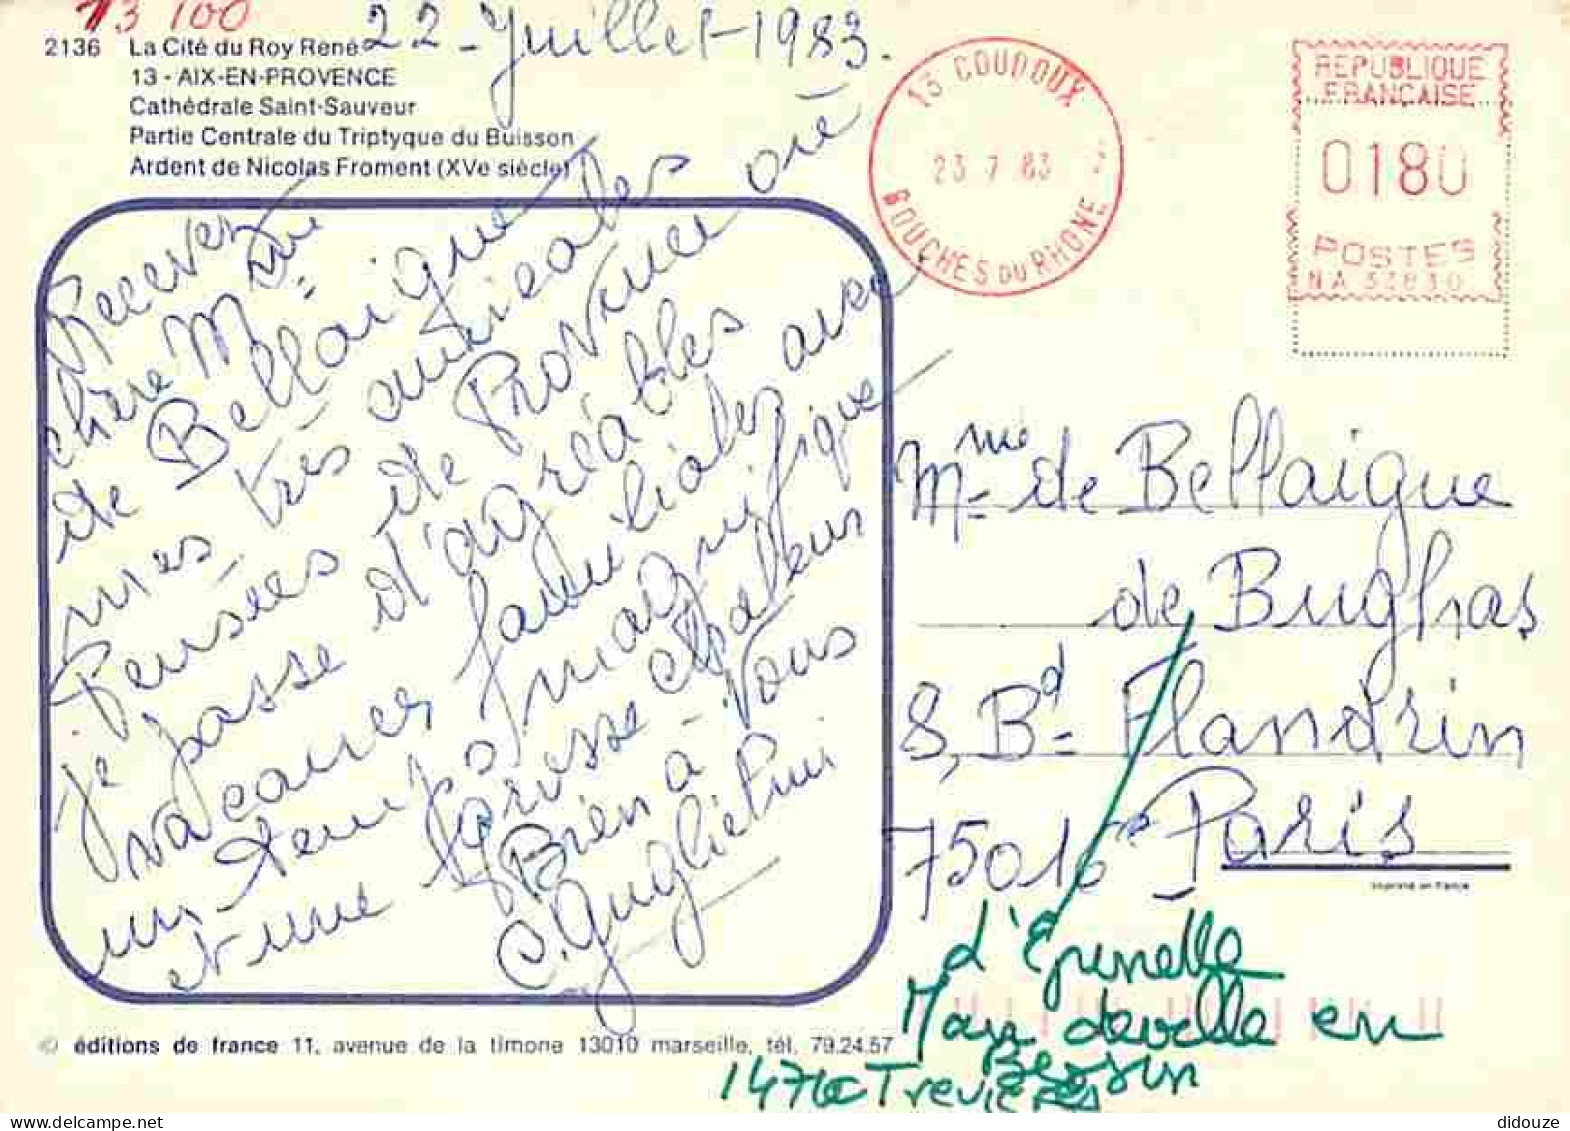 13 100
22 - Juillet - 1983.
2136 La Cité du Roy René
13 - AIX-EN-PROVENCE
Cathédrale Saint-Sauveur
Partie Centrale du Triptyque du Buisson
Ardent de Nicolas Froment (XVe siècle)
13 COUDOUX
23 7 83
BOUCHES DU RHONE
REPUBLIQUE
FRANCAISE
0180
POSTES
NA 33830
Recevez
chère Mme
de Bellaigue
mes très amicales
Pensées de Provence où
je passe d'agréables
vacances familiales avec
un temps magnifique
et une grosse chaleur
Bien à Vous
Mme de Bellaigue
de Bughas
8, Bd Flandrin
75016 Paris
Imprimé en France
Mandeville en
Bessin
Trevieres
© éditions de france 11, avenue de la timone 13010 marseille, tél. 79.24.57
didouze